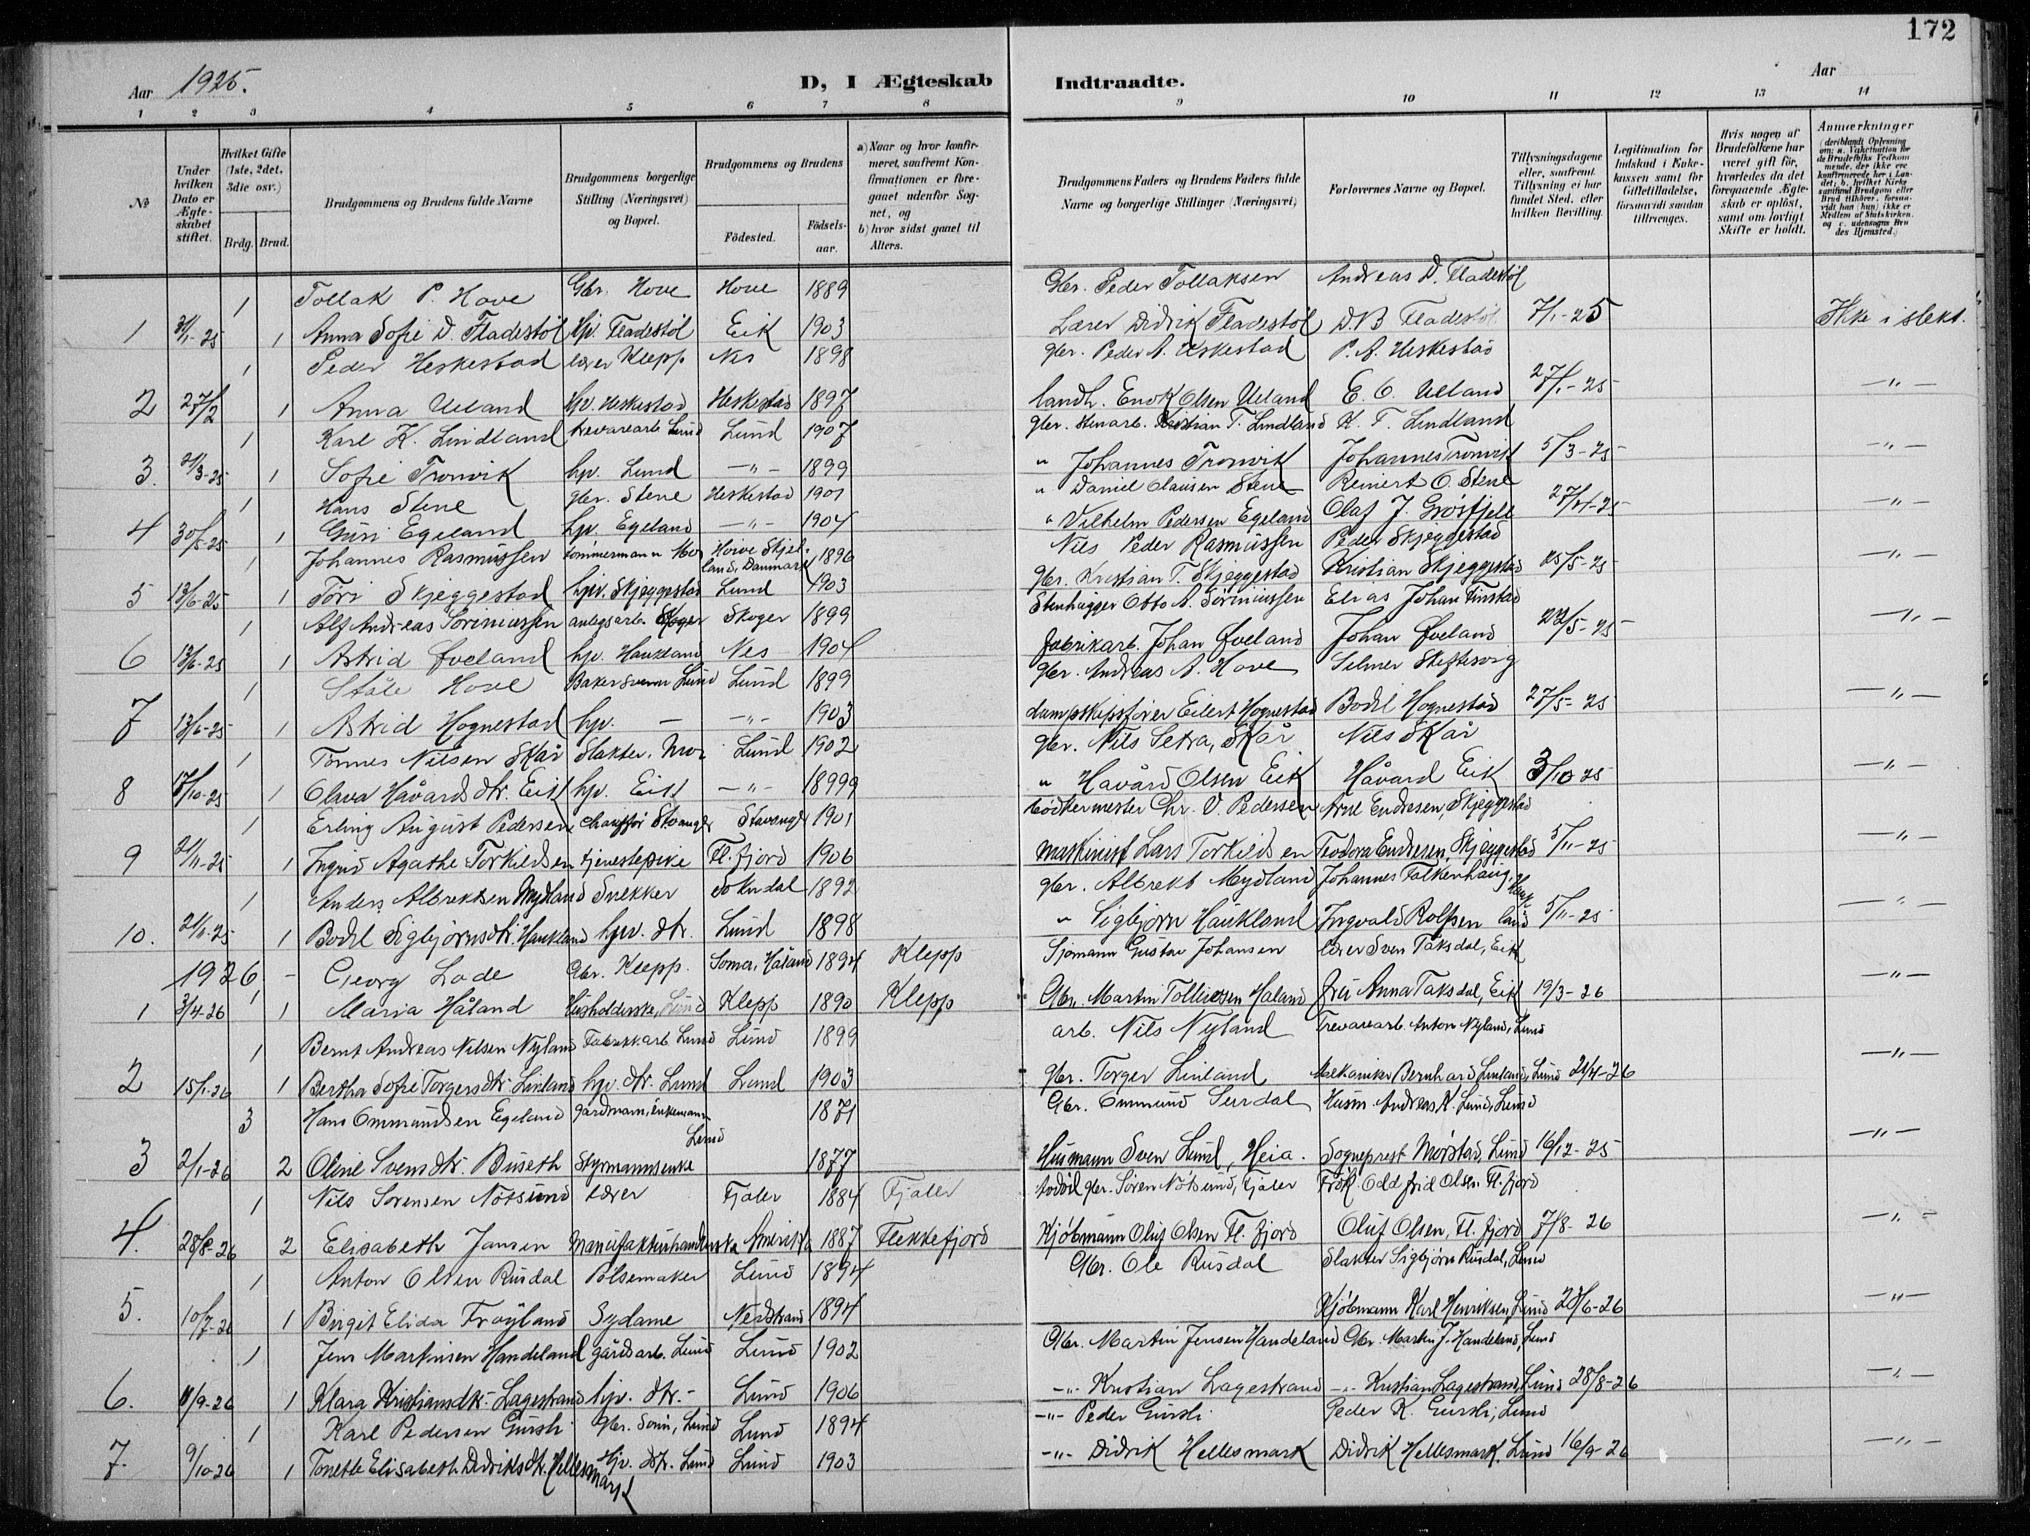 172
Aar 1925. D, I Ægteskab Indtraadte. Aar
1 2 3 4 5 6 7 8 9 10 11 12 13 14
No
Under hvilken Dato er Ægteskabet stiftet.
Hvilket Gifte (1ste, 2det, 3die osv.)
Brdg. Brud.
Brudgommens og Brudens fulde Navne
Brudgommens borgerlige Stilling (Næringsvei) og Bopæl.
Brudgommens og Brudens
Födested. Födselsaar.
a) Naar og hvor konfirmeret, saafremt Konfirmationen er foregaaet udenfor Sognet, og
b) hvor sidst gaaet til Alters.
Brudgommens Faders og Brudens Faders fulde Navne og borgerlige Stillinger (Næringsvei)
Forlovernes Navne og Bopæl.
Tillysningsdagene eller, saafremt Tillysning ei har fundet Sted, efter hvilken Bevilling.
Legitimation for Indskud i Enkekassen samt for Giftetilladelse, forsaavidt saadan tiltrænges.
Hvis nogen af Brudefolkene har været gift för, hvorledes da det foregaaende Ægteskab er oplöst, samt om lovligt Skifte er holdt.
Anmærkninger
1 Tollak P. Hove Gbr. Hove Hove 1889 Gbr. Peder Tollaksen Andreas D. Fladestøl
1 31/1-25 1 Anna Sofie D. Fladestøl hjv. Fladestøl Eik 1903 Lærer Didrik Fladestøl D. B Fladestøl 7/1-25 Ikke i slekt.
1 Peder Heskestad lærer Klepp Nes 1898 gbr. Peder A. Heskestad P. A. Heskestad
2 27/2 1 Anna Ueland hjv. Heskestad Heskestad 1897 landh. Enok Olsen Ueland E. O. Ueland 27/1-25 -"-
1 Karl K. Lindland trevarearb Lund Lund 1907 gbr. Stenarb. Kristian T. Lindland K. T. Lindland
3. 21/3-25 1 Sofie Tronvik hjv. Lund -"- 1899 " Johannes Tronvik Johannes Tronvik 5/3-25 -"-
1 Hans Stene gbr. Stene Heskestad 1901 " Daniel Clausen Stene Reinert O. Stene
4 30/5-25 1 Guri Egeland hjv. Egeland -"- 1904 " Vilhelm Pedersen Egeland Olaf J. Grøsfjell 27/4-25 -"-
1 Johannes Rasmussen tømmermann Moi Danmark 1896 Nils Peder Rasmussen Peder Skjeggestad
5 13/6-25 1 Tori Skjeggestad hjv. Skjeggestad Lund 1903 gbr. Kristian T. Skjeggestad Kristian Skjeggestad 25/5-25 -"-
1 Alf Andreas Sørimussen anlegsarb. Skoger Skoger 1899 Stenhugger Otto A. Sørimussen Elias Johan Finstad
6 13/6-25 1 Astrid Øveland hjv. Haukland Nes 1904 Fabrikarb. Johan Øveland Johan Øveland 22/5-25 -"-
1 Ståle Hove Bakersvenn Lund Lund 1899 gbr. Andreas A. Hove Selmer
7 13/6-25 1 Astrid Hognestad hjv. - -"- 1903 dampskipsfører Eilert Hognestad Bodil Hognestad 27/5-25 -"-
1 Tønnes Nilsen Skår Slakter, Moi Lund 1902 gbr. Nils Setra, Skår Nils Skår
8 17/10-25 1 Olava Håvardsdtr. Eik hjv. Eik -"- 18999 " Håvard Olsen Eik Håvard Eik 3/10-25 -"-
1 Erling August Pedersen Chauffør Stavanger Stavanger 1901 bødkermester Chr. V. Pedersen Arne Endresen, Skjeggestad
9 21/11-25 1 Ingrid Agathe Torkildsen tjenestepike Fl. fjord 1906 maskinist Lars Torkildsen Teodora Endresen, Skjeggestad 5/11-25 -"-
1 Anders Albrektsen Mydland Snekker Sokndal 1892 gbr. Albrekt Mydland Johannes Falkenhaug
10. 21/11-25 1 Bodil Sigbjørnsdtr. Haukland hjv. dtr. Lund 1898 " Sigbjørn Haukland Ingvald Rolfsen 5/11-25 -"-
1926 - Georg Lode Gbr. Klepp. Soma, Håland 1894 Klepp Sjømann Gustav Johansen lærer Sven Taksdal, Eik
1 3/4-26 1 1 Maria Håland Husholderske, Lund Klepp 1890 Klepp Gbr. Martin Tolliesen Håland fru Anna Taksdal, Eik 19/3-26 -"-
1 Bernt Andreas Nilsen Nyland Fabrikkarb Lund Lund 1899 arb. Nils Nyland Trevarearb Anton Nyland, Lund
2 15/1-26 1 Bertha Sofie Torgersdtr. Linland hjv. dtr. Lund Lund 1903 gbr. Torger Linland Mekaniker Bernhard Linland, Lund 21/4-26 -"-
3 Hans Ommundsen Egeland gårdmann, enkemann Lund 1871 Gbr. Ommund Serdal Husm. Andreas K. Lund, Lund
3 2/1-26 2 Oline Svensdtr. Buseth Styrmannsenke 1877 Husmann Sven Lund, Heia. Sogneprest Mørstad, Lund 16/12-25 -"-
1 Nils Sørensen Nøtsund lærer Fjaler 1884 Fjaler gbr. Søren Nøtsund, Fjaler Frøk. Oddfrid Olsen Fl. fjord
4. 28/8-26 2 Elisabeth Jansen Manufakturhandlerske Amerika 1887 Flekkefjord Kjøbmann Oluf Olsen Fl. fjord Oluf Olsen, Fl. fjord 7/8-26 -"-
1 Anton Olsen Rusdal Pølsemaker Lund 1894 Gbr. Ole Rusdal Slakter Sigbjørn Rusdal, Lund
5. 10/7-26 1 Birgit Elida Frøyland Sydame Nedstrand 1894 Kjøbmann Karl Henriksen, Lund 20/6-26 -"-
1 Jens Martinsen Handeland gårdsarb. Lund Lund 1902 Gbr. Martin Jensen Handeland Gbr. Martin J. Handeland, Lund
6. 11/9-26 1 Klara Kristiansdtr. Lagestrand hjv. dtr.- Lund 1906 -"- Kristian Lagestrand -"- Kristian Lagestrand, Lund 28/8-26 -"-
1 Karl Pedersen Gursli Gbr. sønn, Lund Lund 1894 -"- Peder Gursli Peder K. Gursli, Lund
7. 9/10-26 1 Tonette Elisabeth Didriksdtr. Hellesmark Hjv. dtr. Lund Lund 1903 -"- Didrik Hellesmark Didrik Hellesmark, Lund 16/9-26 -"-